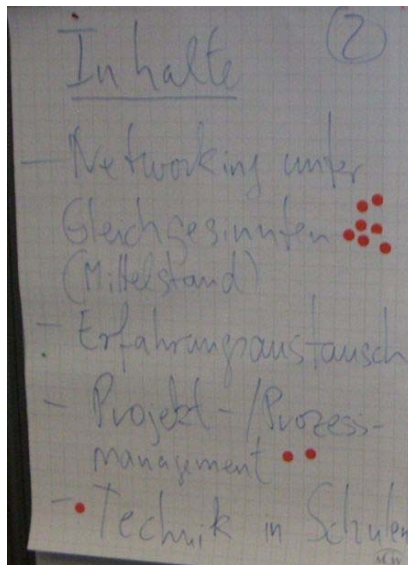 Inhalte
2
- Networking unter
Gleichgesinnten
(Mittelstand)
- Erfahrungsaustausch
- Projekt-/Prozess-
management
- Technik in Schulen